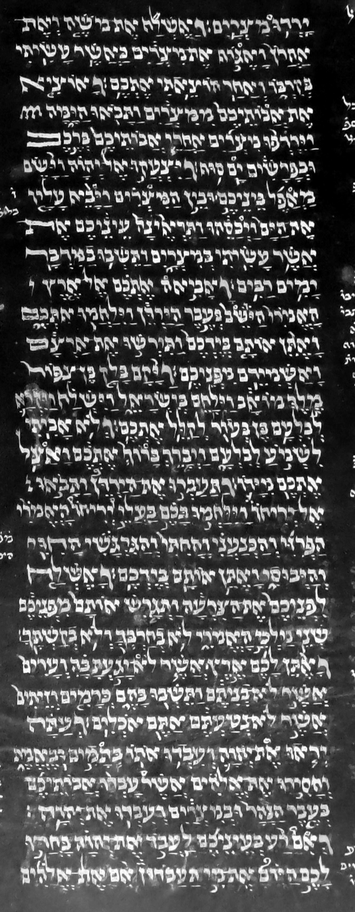 ירדו מצרים׃ ואשלח את משה ואת
אהרן ואגף את מצרים כאשר עשיתי
בקרבו ואחר הוצאתי אתכם׃ ואוציא
את אבותיכם ממצרים ותבאו הימה
וירדפו מצרים אחרי אבותיכם ברכב
ובפרשים ים סוף׃ ויצעקו אל יהוה וישם
מאפל ביניכם ובין המצרים ויבא עליו
את הים ויכסהו ותראינה עיניכם את
אשר עשיתי במצרים ותשבו במדבר
ימים רבים׃ ואביאה אתכם אל ארץ
האמורי היושב בעבר הירדן וילחמו אתכם
ואתן אותם בידכם ותירשו את ארצם
ואשמידם מפניכם׃ ויקם בלק בן צפור
מלך מואב וילחם בישראל וישלח ויקרא
לבלעם בן בעור לקלל אתכם׃ ולא אביתי
לשמע לבלעם ויברך ברוך אתכם ואצל
אתכם מידו׃ ותעברו את הירדן ותבאו
אל יריחו וילחמו בכם בעלי יריחו האמרי
והפרזי והכנעני והחתי והגרגשי החוי
והיבוסי ואתן אותם בידכם׃ ואשלח
לפניכם את הצרעה ותגרש אותם מפניכם
שני מלכי האמרי לא בחרבך ולא בקשתך׃
ואתן לכם ארץ אשר לא יגעת בה וערים
אשר לא בניתם ותשבו בהם כרמים וזיתים
אשר לא נטעתם אתם אכלים׃ ועתה
יראו את יהוה ועבדו אותו בתמים ובאמת
והסירו את אלהים אשר עבדו אבותיכם
בעבר הנהר ובמצרים ועבדו את יהוה׃
ואם רע בעיניכם לעבד את יהוה בחרו
לכם היום את מי תעבדון אם את אלהים